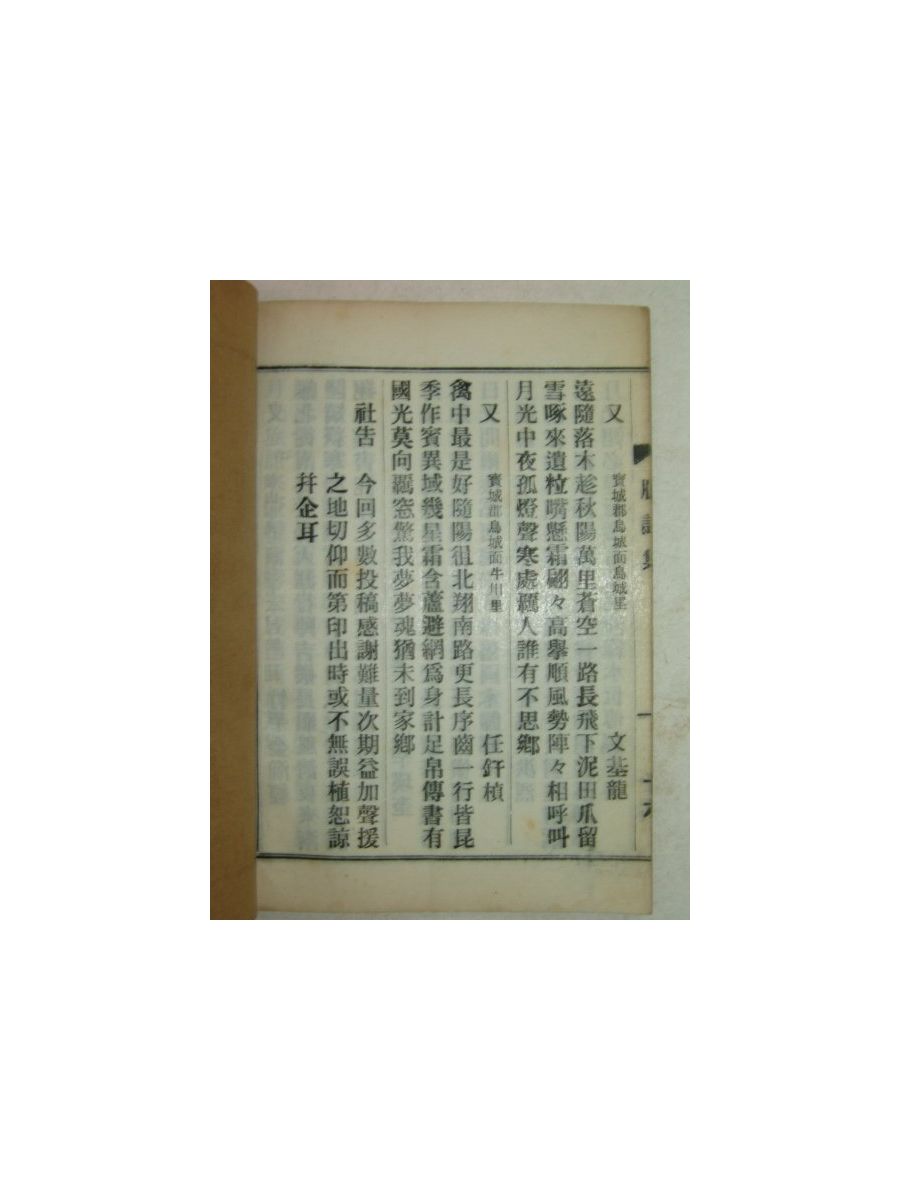 又 寶城郡鳥城面鳥城里 文基龍
遠隨落木趁秋陽萬里蒼空一路長飛下泥田爪留
雪啄來遺粒嘴懸霜翩々高擧順風勢陣々相呼叫
月光中夜孤燈聲寒處羈人誰有不思鄕
又 寶城郡鳥城面牛川里 任釬楨
禽中最是好隨陽徂北翔南路更長序齒一行皆昆
季作賓異域幾星霜含蘆避網爲身計足帛傳書有
國光莫向羈窓驚我夢夢魂猶未到家鄕
社吿 今回多數投稿感謝難量次期益加聲援
之地切仰而第印出時或不無誤植恕諒
幷企耳